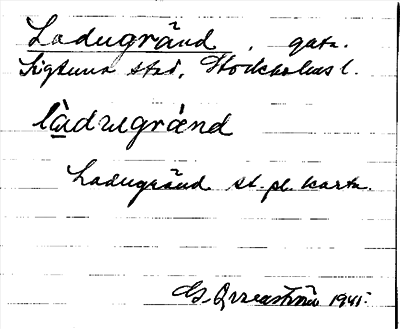 Ladugränd, gata.
Sigtuna stad, Stockholms l.
làdugränd
Ladugränd st. pl. karta.
1941.